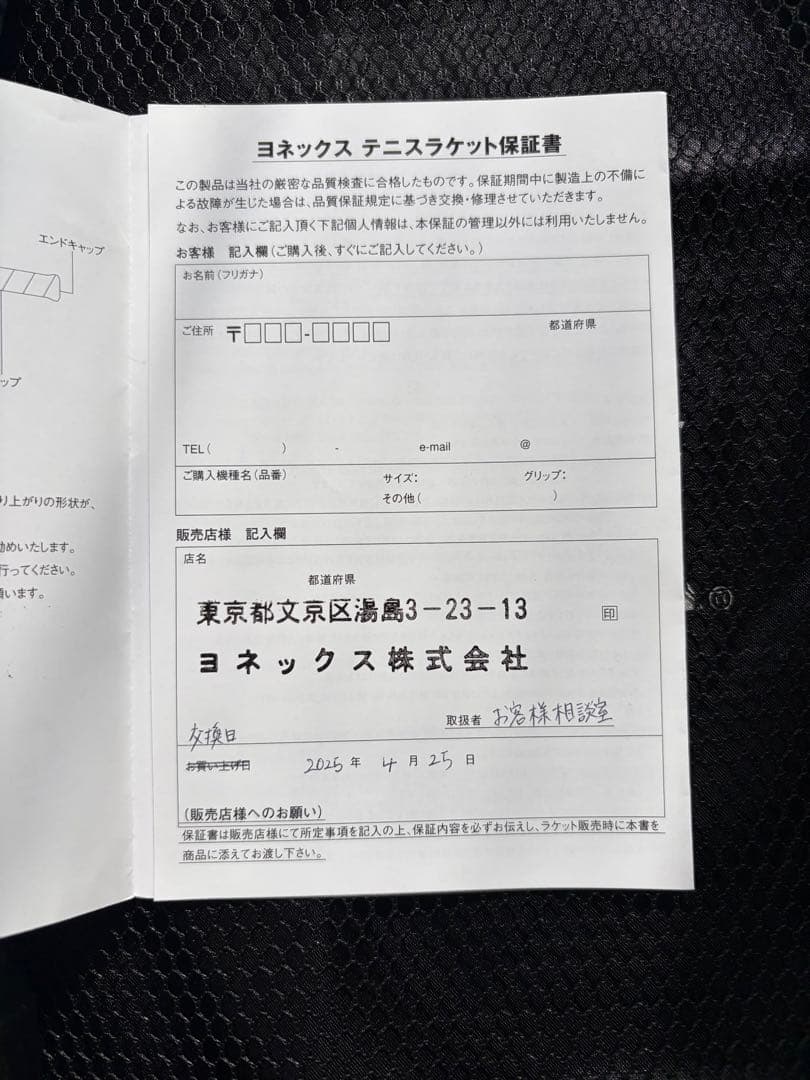 エンドキャップ
ップ
り上がりの形状が、
勧めいたします。
行ってください。
願います。
ヨネックス テニスラケット保証書
この製品は当社の厳密な品質検査に合格したものです。保証期間中に製造上の不備に
よる故障が生じた場合は、品質保証規定に基づき交換・修理させていただきます。
なお、お客様にご記入頂く下記個人情報は、本保証の管理以外には利用いたしません。
お客様 記入欄(ご購入後、すぐにご記入してください。)
お名前(フリガナ)
ご住所 〒□□□-□□□□ 都道府県
TEL( ) - e-mail @
ご購入機種名(品番) サイズ: グリップ:
その他( )
販売店様 記入欄
店名
都道府県
東京都文京区湯島3-23-13 印
ヨネックス株式会社
取扱者 お客様相談室
交換日
お買い上げ日 2025年 4月 25日
(販売店様へのお願い)
保証書は販売店様にて所定事項を記入の上、保証内容を必ずお伝えし、ラケット販売時に本書を
商品に添えてお渡し下さい。